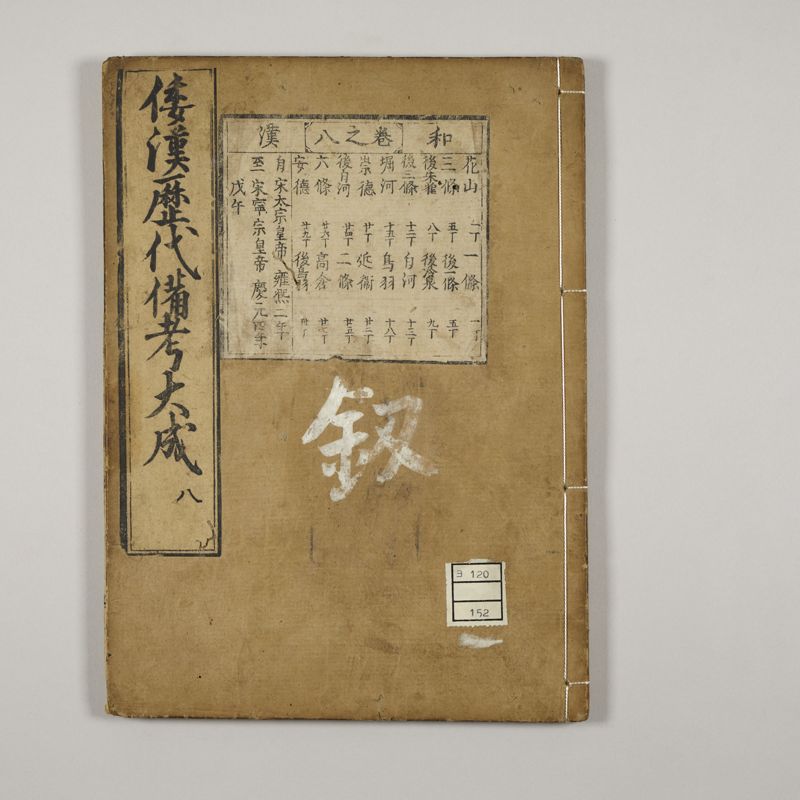 倭漢歴代備考大成 八
和 巻之八 漢
花山 一丁 一條 一丁
三條 五丁 後一條 五丁
後朱雀 八丁 後冷泉 九丁
後三條 十二丁 白河 十三丁
堀河 十五丁 鳥羽 十八丁
崇德 廿丁 近衛 廿二丁
後白河 廿四丁 二條 廿五丁
六條 廿六丁 高倉 廿七丁
安德 廿九丁 後鳥羽 卅丁
自宋太宗皇帝雍熙二年
至宋寧宗皇帝慶元四年
戊午
釼
ヨ 120
152